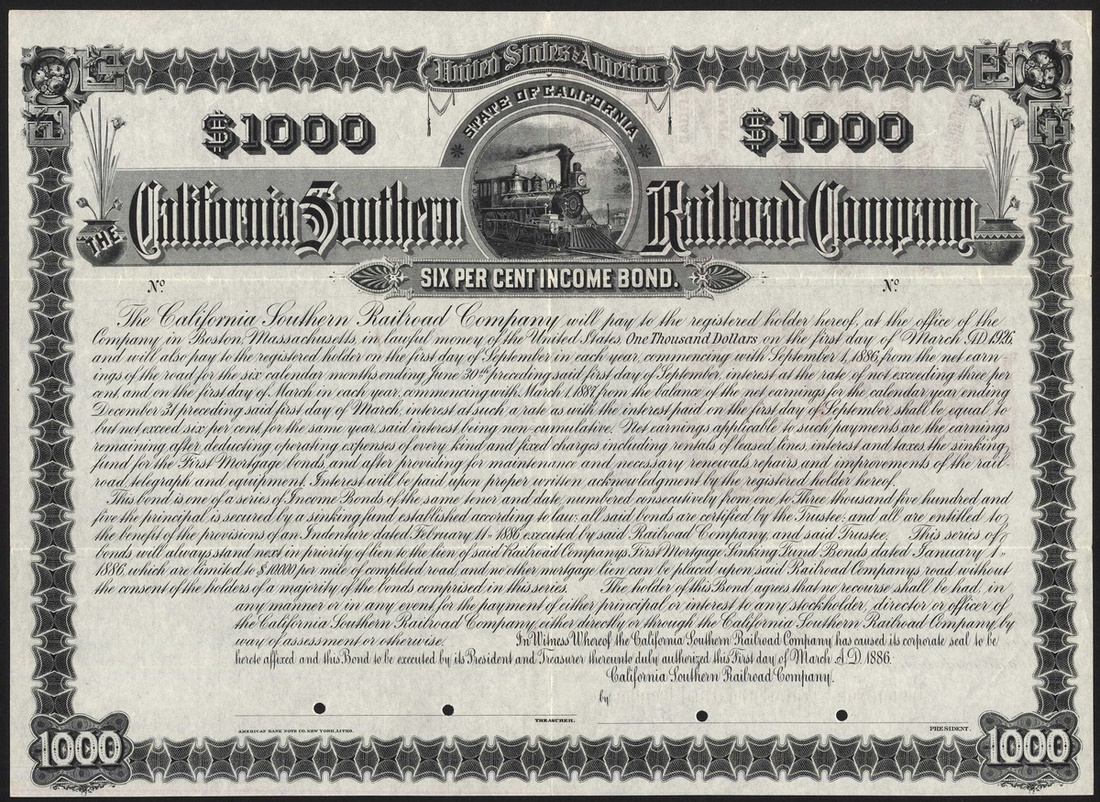 United States of America
STATE OF CALIFORNIA
$1000 $1000
THE California Southern Railroad Company
SIX PER CENT INCOME BOND.
No No
The California Southern Railroad Company will pay to the registered holder hereof, at the office of the
Company in Boston, Massachusetts, in lawful money of the United States One Thousand Dollars on the first day of March, A.D. 1926,
and will also pay to the registered holder on the first day of September in each year, commencing with September 1, 1886, from the net earn-
ings of the road for the six calendar months ending June 30th preceding said first day of September, interest at the rate of not exceeding three per
cent, and on the first day of March in each year, commencing with March 1, 1887, from the balance of the net earnings for the calendar year ending
December 31 preceding said first day of March, interest at such a rate as with the interest paid on the first day of September shall be equal to
but not exceed six per cent. for the same year, said interest being non-cumulative. Net earnings applicable to such payments are the earnings
remaining after deducting operating expenses of every kind and fixed charges including rentals of leased lines, interest and taxes, the sinking
fund for the First Mortgage bonds, and after providing for maintenance and necessary renewals repairs and improvements of the rail-
road, telegraph and equipment. Interest will be paid upon proper written acknowledgment by the registered holder hereof.
This bond is one of a series of Income Bonds of the same tenor and date, numbered consecutively from one to Three thousand five hundred and
five the principal is secured by a sinking fund established according to law: all said bonds are certified by the Trustee: and all are entitled to
the benefit of the provisions of an Indenture dated February 11 - 1886 executed by said Railroad Company, and said Trustee. This series of
bonds will always stand next in priority of lien to the lien of said Railroad Companys First Mortgage Sinking Fund Bonds dated January 1 -
1886, which are limited to $10,000 per mile of completed road, and no other mortgage lien can be placed upon said Railroad Companys road without
the consent of the holders of a majority of the bonds comprised in this series. The holder of this Bond agrees that no recourse shall be had, in
any manner or in any event for the payment of either principal or interest to any stockholder, director or officer of
the California Southern Railroad Company, either directly or through the California Southern Railroad Company, by
way of assessment or otherwise. In Witness Whereof the California Southern Railroad Company has caused its corporate seal to be
hereto affixed and this Bond to be executed by its President and Treasurer thereunto duly authorized this First day of March A.D. 1886.
California Southern Railroad Company.
by
TREASURER. PRESIDENT.
AMERICAN BANK NOTE CO. NEW YORK, LITHO.
1000 1000